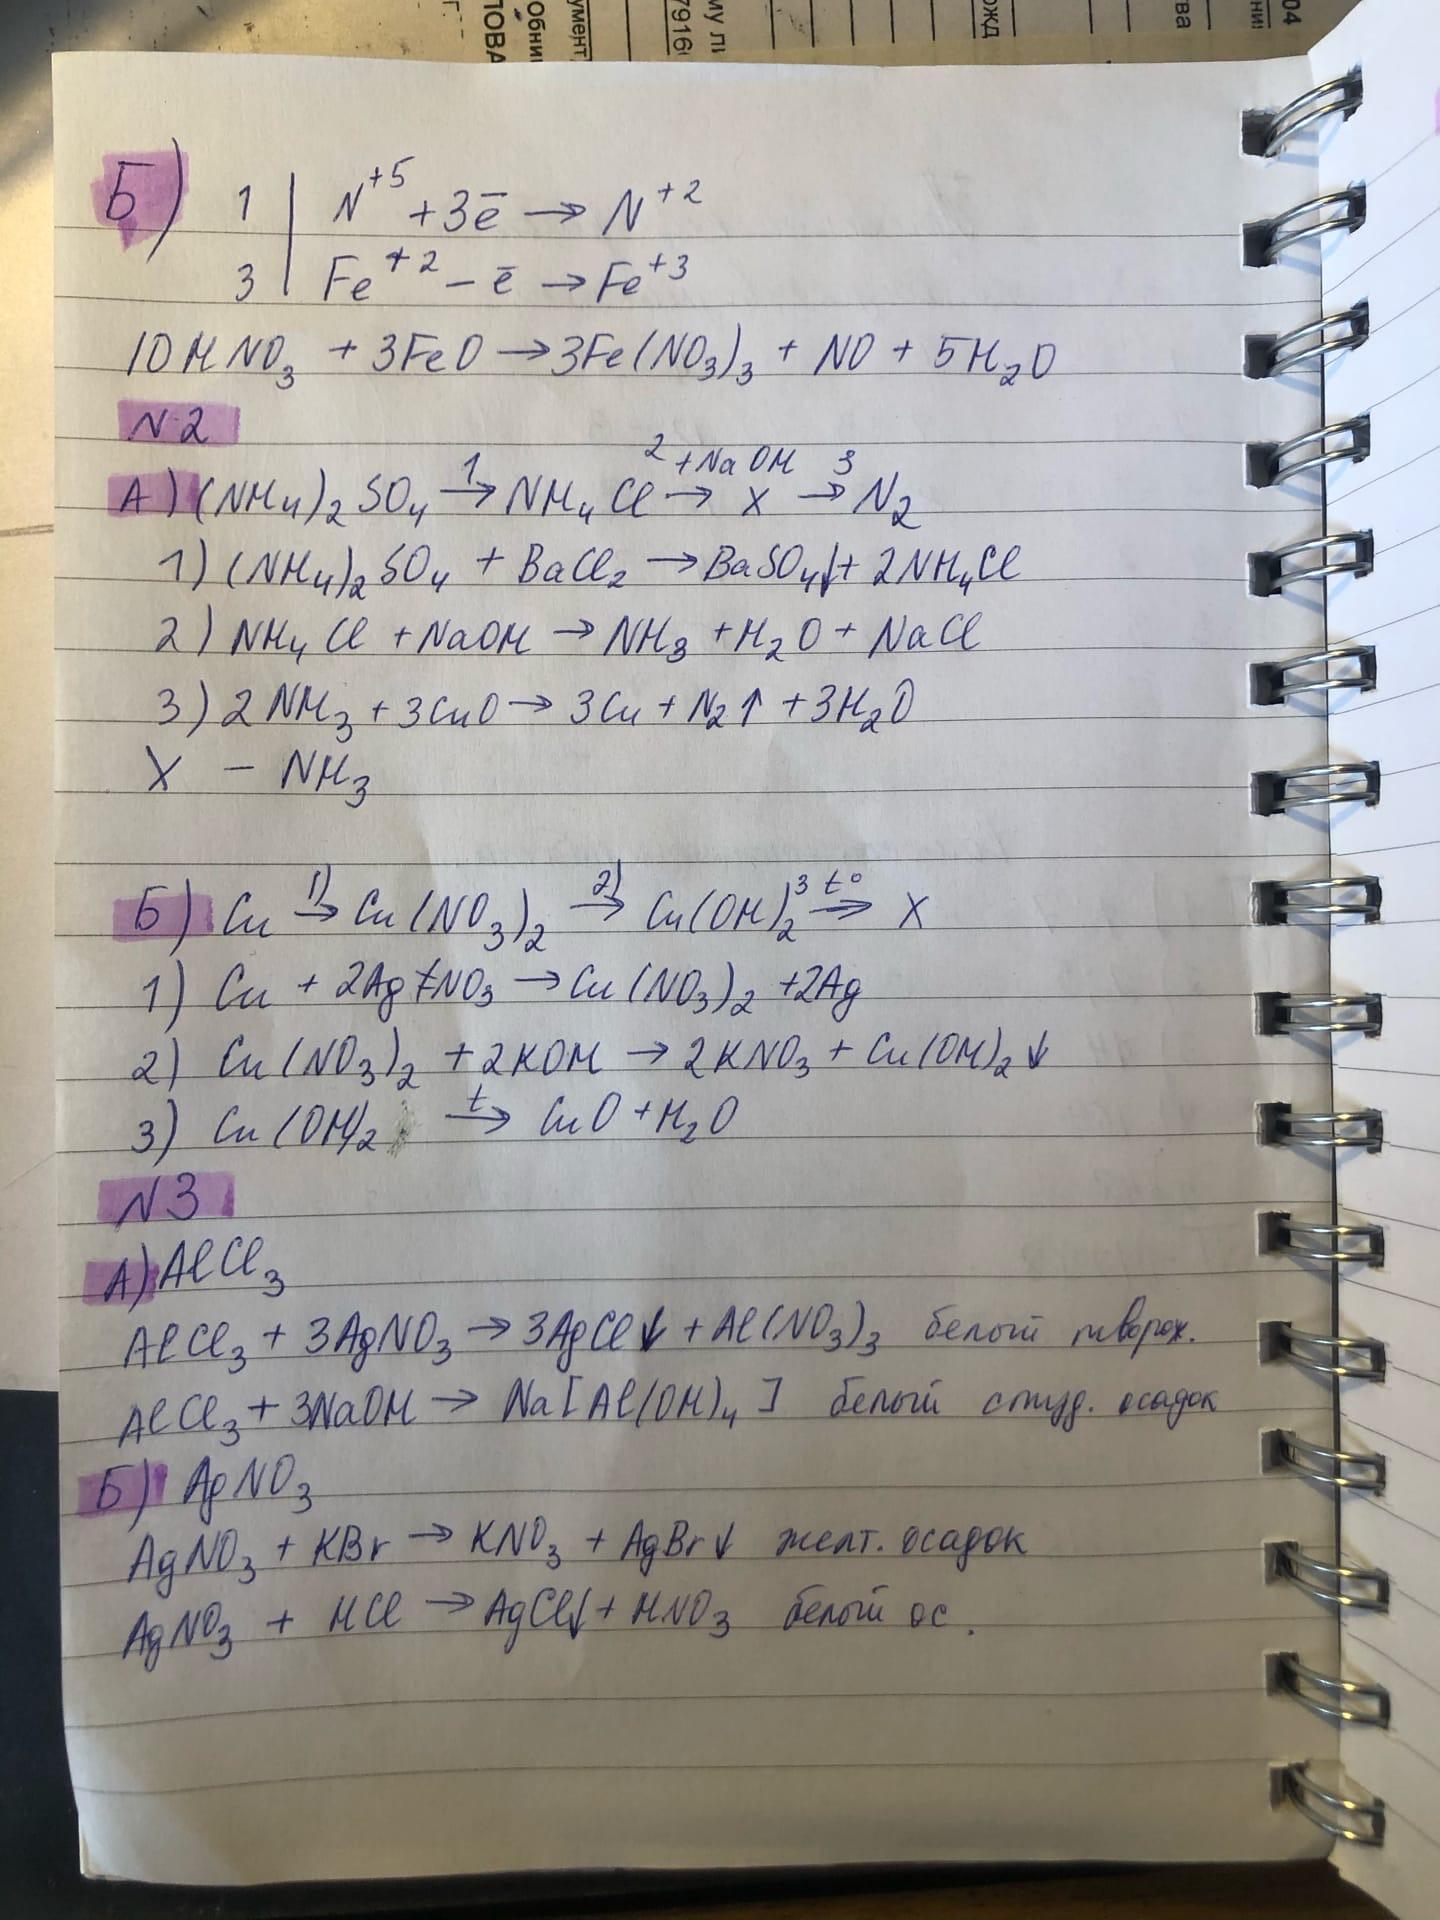 04
ва
ожд
му ли
7916
умент
Обни
ПОВА
Б) 1 | N⁺⁵ + 3ē → N⁺²
3 | Fe⁺² – ē → Fe⁺³
10HNO₃ + 3FeO → 3Fe(NO₃)₃ + NO + 5H₂O
N2
А) (NH₄)₂SO₄ →¹ NH₄Cl →² ⁺ᴺᵃᴼᴴ X →³ N₂
1) (NH₄)₂SO₄ + BaCl₂ → BaSO₄↓ + 2NH₄Cl
2) NH₄Cl + NaOH → NH₃ + H₂O + NaCl
3) 2NH₃ + 3CuO → 3Cu + N₂↑ + 3H₂O
X – NH₃
Б) Cu →¹⁾ Cu(NO₃)₂ →²⁾ Cu(OH)₂ →³ ᵗ° X
1) Cu + 2AgNO₃ → Cu(NO₃)₂ + 2Ag
2) Cu(NO₃)₂ + 2KOH → 2KNO₃ + Cu(OH)₂↓
3) Cu(OH)₂ →ᵗ CuO + H₂O
N3
А) AlCl₃
AlCl₃ + 3AgNO₃ → 3AgCl↓ + Al(NO₃)₃ белый творож.
AlCl₃ + 3NaOH → Na[Al(OH)₄] белый студ. осадок
Б) AgNO₃
AgNO₃ + KBr → KNO₃ + AgBr↓ желт. осадок
AgNO₃ + HCl → AgCl↓ + HNO₃ белый ос.